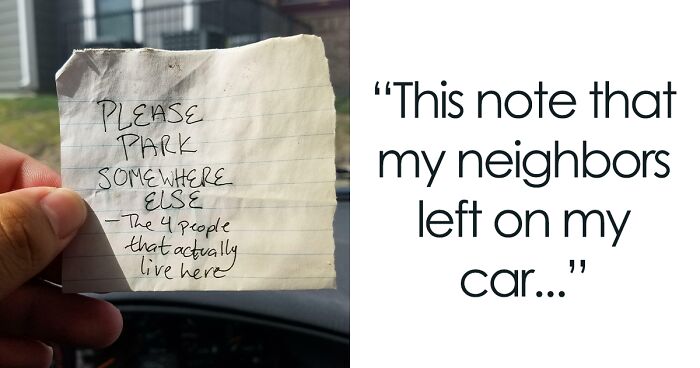 PLEASE
PARK
SOMEWHERE
ELSE
- The 4 people
that actually
live here
“This note that
my neighbors
left on my
car...”